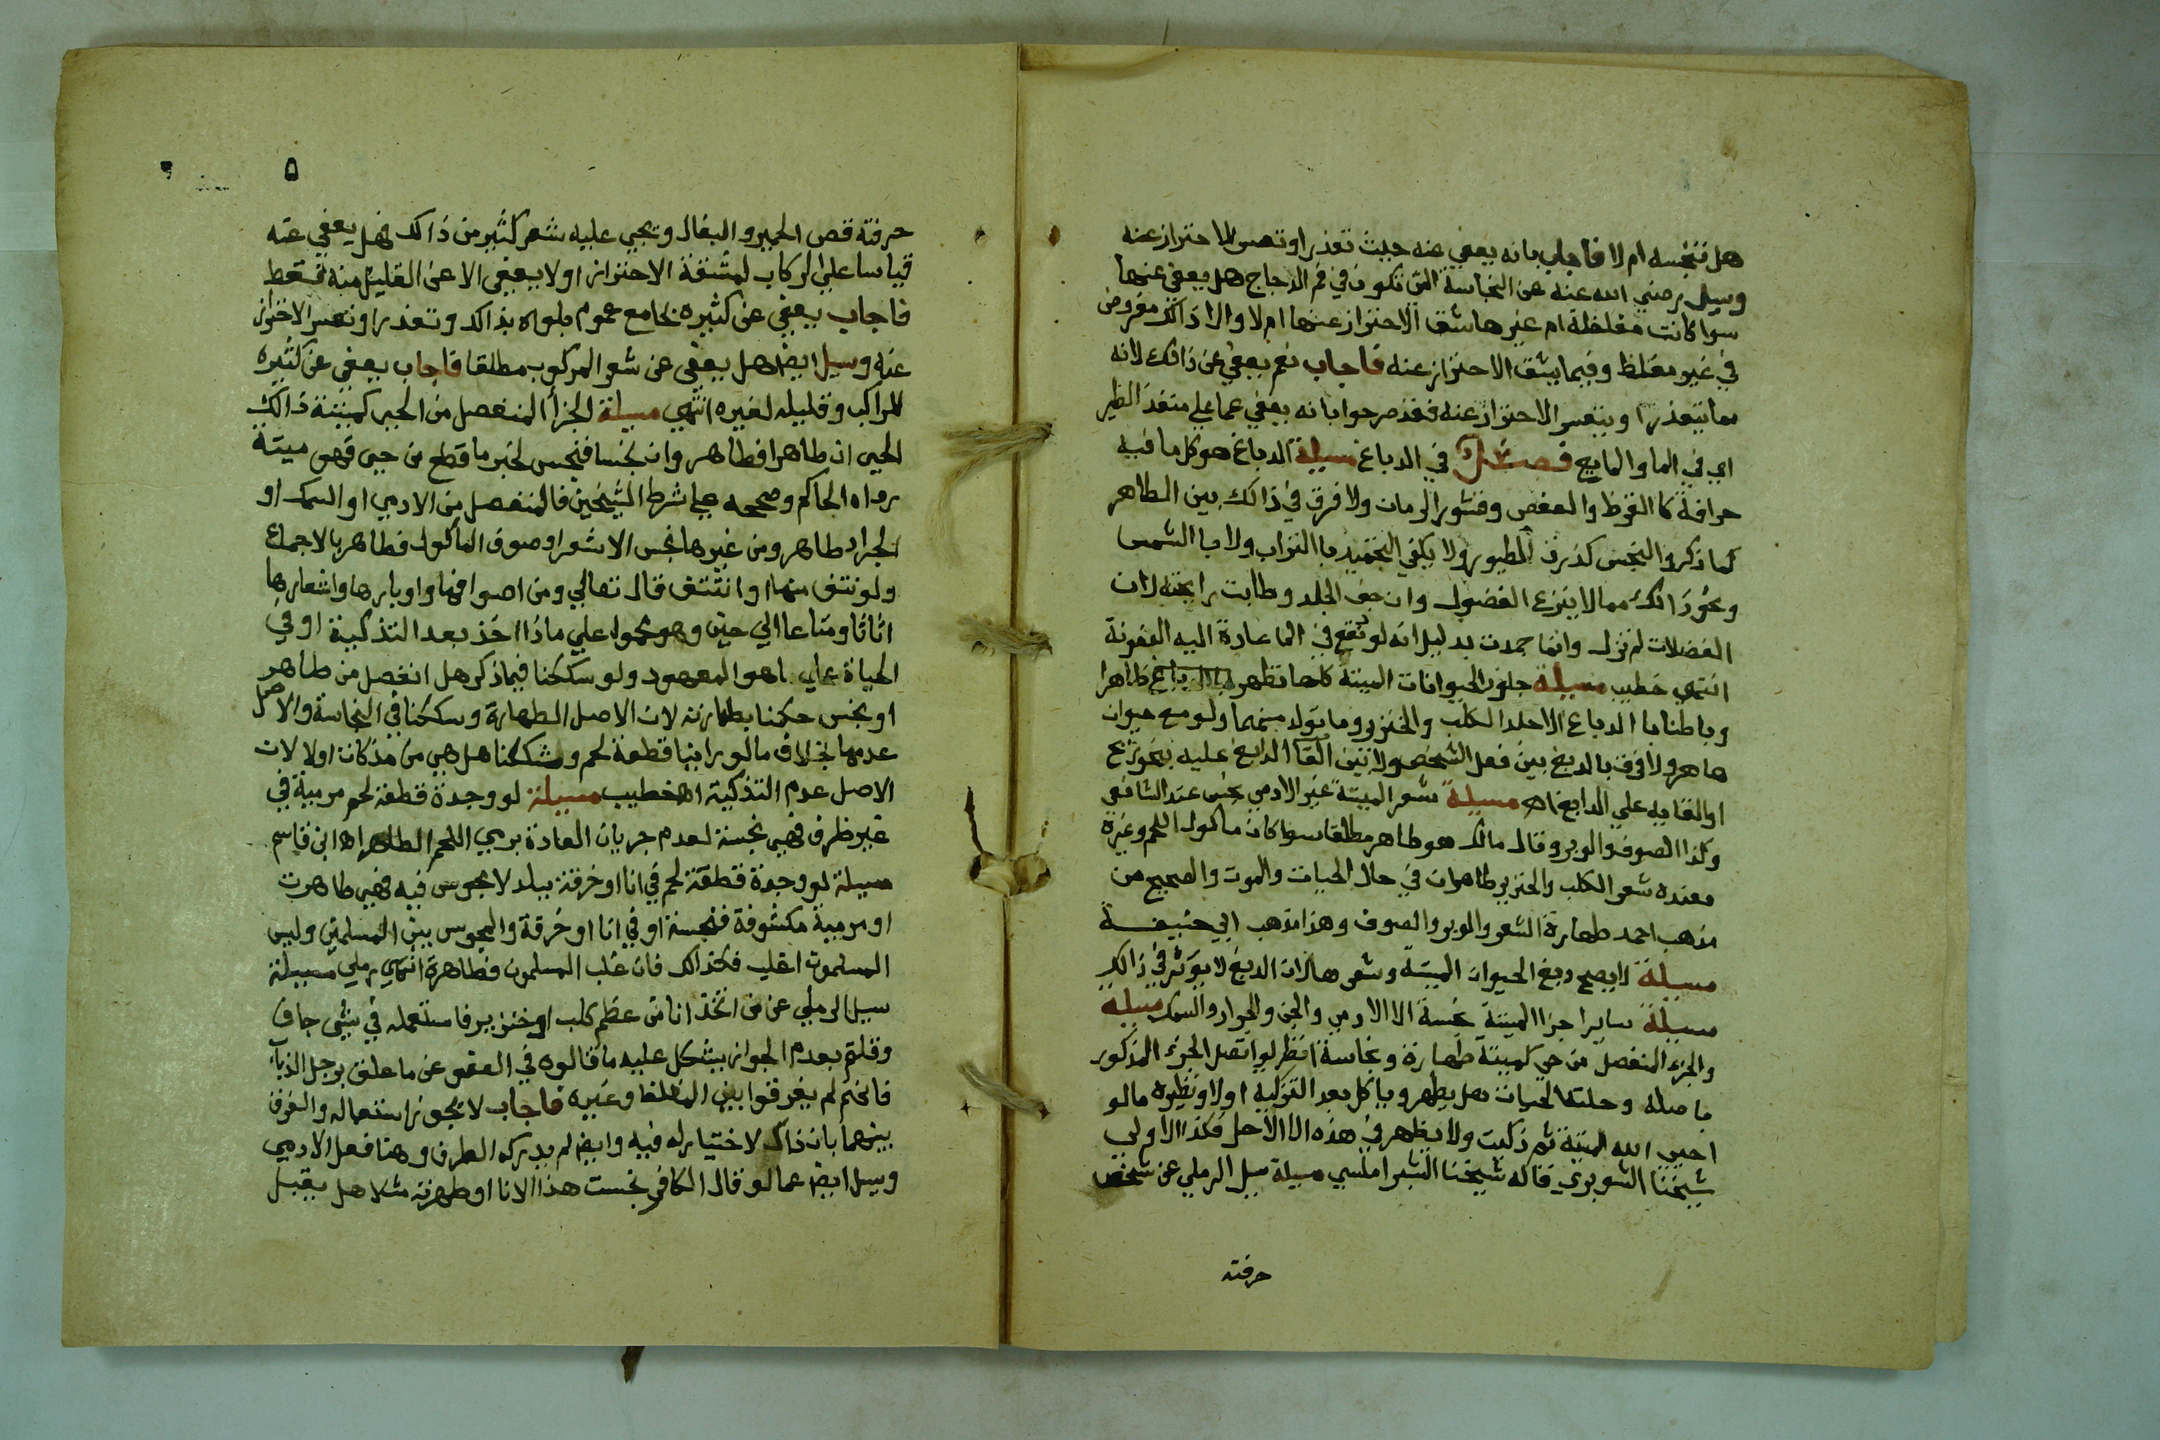 هل تنجسه ام لا فاجاب بانه يعفي عنه حيث تعذر او تعسر الاحتراز عنه
وسيل رضي الله عنه عن النجاسة التي تكون في فم الدجاج هل يعفي عنها
سوا كانت مغلظة ام غيرها شق الاحتراز عنها ام لا والا ذالك مفروض
في غير مغلظ وفيما يشق الاحتراز عنه فاجاب نعم يعفي عن ذالك لانه
مما يتعذر او يتعسر الاحتراز عنه فقد صرحوا بانه يعفي عما علي منفذ الطير
اي في الما والمايع فصل في الدباغ مسيلة الدباغ هو كل ما فيه
حرافة كا القرظ والعفص وقشور الرمان ولا فرق في ذالك بين الطاهر
كما ذكر والنجس كذرق الطيور ولا يكفي التجميد با التراب ولا با الشمس
ونحو ذالك مما لا ينزع الفضول وان جف الجلد وطابت رايحته لان
الفضلات لم تزل وانما جمدت بدليل انه لو نقع في الما عادة اليه العفونة
انتهي خطيب مسيلة جلود الحيوانات الميتة كلها تطهر بالدباغ ظاهرا
وباطنا با الدباغ الا جلد الكلب والخنزير وما تولد منهما ولو مع حيوان
طاهر ولا فرق بالدبغ بين فعل الشخص ولا بين القا الدابغ عليه بنحو ريح
او القايه علي الدابغ اهـ مسيلة شعر الميتة غير الادمي نجس عند الشافعي
وكذا الصوف والوبر وقال مالك هو طاهر مطلقا سوا كان ماكول اللحم وغيره
فعنده شعر الكلب والخنزير طاهران في حال الحيات والموت والصحيح من
مذهب احمد طهارة الشعر والوبر والصوف وهذا مذهب ابي حنيفة
مسيلة لا يصح دبغ الحيوان الميتة وشعرها لان الدبغ لا يوثر في ذالك
مسيلة ساير اجزا الميتة نجسة الا الادمي والجن والجراد والسمك مسيلة
والجزء المنفصل من حي كميتة طهارة ونجاسة انظر لو اتصل الجزء المذكور
باصله وحلته الحيات هل يطهر وياكل بعد التزكية اولا ونظيره مالو
احيي الله الميتة ثم ذكيت ولا يظهر في هذه الا الاحل فكذا الاولي
شيخنا الشوبري قاله شيخنا الشبراملسي مسيلة سيل الرملي عن شخص
حرفته
٥
حرفته قص الحمير والبغال ويجي عليه شعر كثير من ذالك فهل يعفي عنه
قياسا علي الركاب لمشقة الاحتراز اولا يعفي الا عن القليل منه فقط
فاجاب يعفي عن كثيره بجامع عموم بلواه بذالك وتعذر او تعسر الاحتراز
عنه وسيل ايضا هل يعفي عن شعر المركوب مطلقا فاجاب يعفي عن كثيره
للراكب وقليله لغيره انتهي مسيلة الجزأ المنفصل من الحي كميتة ذالك
الحي ان طاهرا فطاهر وان نجسا فنجس لخبر ما قطع من حي فهو ميتة
رواه الحاكم وصححه علي شرط الشيخين فالمنفصل من الادمي او السمك او
الجراد طاهر ومن غيرها نجس الا شعر او صوف المأكول فطاهر بالاجماع
ولو نتف منها او انتتف قال تعالي ومن اصوافها واوبارها واشعارها
اثاثا ومتاعا الي حين وهو محمول علي ما ذا اخذ بعد التذكية او في
الحياة علي ما هو المعهود ولو شككنا فيما ذكر هل انفصل من طاهر
او نجس حكمنا بطهارته لان الاصل الطهارة وشككنا في النجاسة والاصل
عدمها بخلاف مالو راينا قطعة لحم وشككنا هل هي من مذكاة اولا لان
الاصل عدم التذكية اهـ خطيب مسيلة لو وجدة قطعة لحم مرمية في
غير ظرف فهي نجسة لعدم جريان العادة برمي اللحم الطاهر اهـ ابن قاسم
مسيلة لو وجدة قطعة لحم في انا او خرقة ببلد لا مجوس فيه فهي طاهرت
او مرمية مكشوفة فنجسة او في انا او خرقة والمجوس بين المسلمين وليس
المسلموت اغلب فكذالك فان غلب المسلمون فطاهرة انتهي رملي مسيلة
سيل الرملي عن من اتخذ انا من عظم كلب او خنزير فاستعمله في شي جاف
وقلتم بعدم الجواز يشكل عليه ما قالوه في العفو عن ما علق برجل الذباب
فانهم لم يفرقوا بين المغلظا وغيره فاجاب لا يجوز استعماله والفرق
بينهما بان ذاك لا ختيار له فيه وايضا لم يدركه الطرف وهنا فعل الادمي
وسيل ايضا عما لو قال الكافر نجست هذا الانا او طهرته مثلا هل يقبل